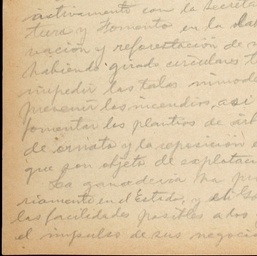 activamente con la Secreta
tura y Fomento en la
vación y reforestación de
habiendo girado circulares
impedir las talas inmode
prevenir los incendios, así
fomentar los plantíos de árb
de ornato y la reposición
que son objeto de explotac
La ganadería ha pro
riamente en el Estado, y
las facilidades posibles a los
el impulso de sus negocia